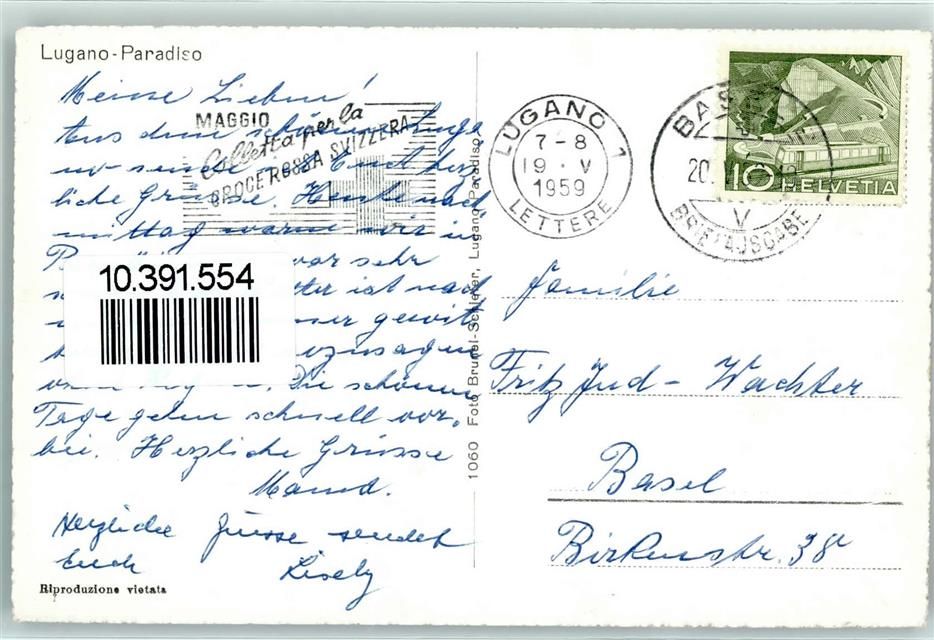 Lugano-Paradiso
Meine Lieben!
Aus dem schönen Luga
no sende Euch herz
liche Grüsse. Heute nach
mittag waren wir in
war sehr
ist nach
immer gewitt
sozusagen
Die schönen
Tage gehen schnell vor
bei. Herzliche Grüsse
Herzliche Grüsse sendet
Euch Lisely
Riproduzione vietata
MAGGIO
Colletta per la
CROCE ROSSA SVIZZERA
10.391.554
1060 Foto Brunel-Schiefer, Lugano-Paradiso
LUGANO 1
7-8
19·V
1959
LETTERE
20.
V
BRIEFAUSGABE
10 HELVETIA
Familie
Fritz Jud-Wachter
Basel
Birkenstr. 38